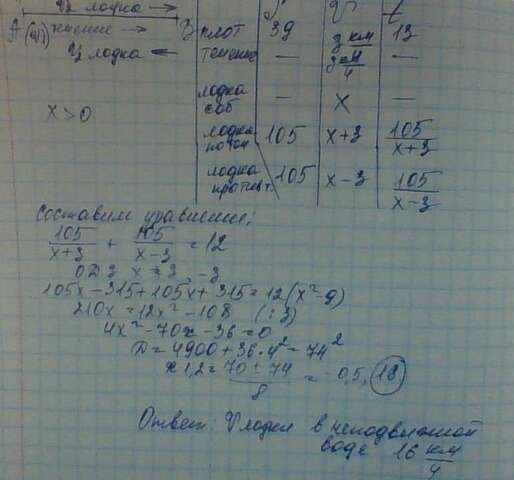 лодка → S V t
A течение → B плот 39 3 км/ч 13
V2 лодка ← течение — 3 км/ч —
x>0 лодка соб — x —
лодка по теч 105 x+3 105/(x+3)
лодка против т. 105 x-3 105/(x-3)
Составим уравнение:
105/(x+3) + 105/(x-3) = 12
ОДЗ x ≠ 3, -3
105x-315+105x+315=12(x²-9)
210x=12x²-108 (:3)
4x²-70x-36=0
D=4900+36·4²=74²
x1,2=(70±74)/8=-0,5, 18
Ответ: V лодки в неподвижной
воде 16 км/ч